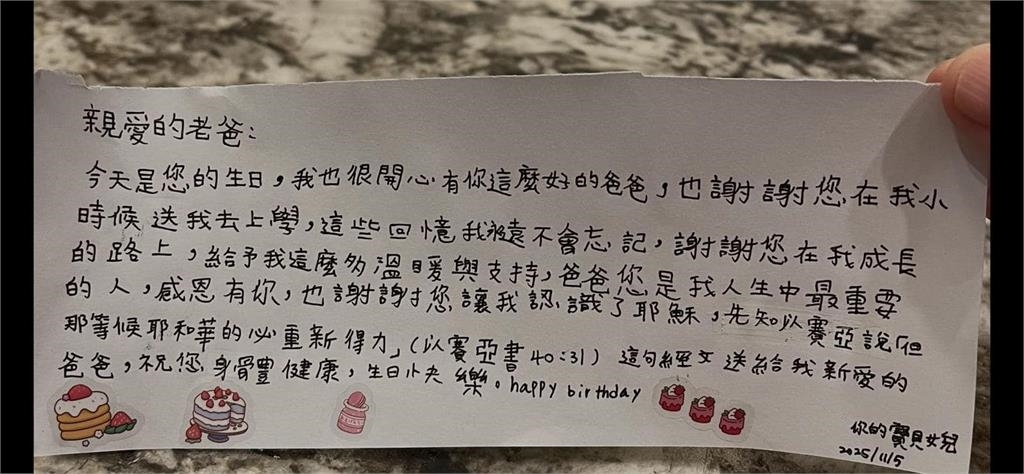 親愛的老爸:
今天是您的生日，我也很開心有你這麼好的爸爸，也謝謝您在我小
時候送我去上學，這些回憶我永遠不會忘記，謝謝您在我成長
的路上，給予我這麼多溫暖與支持，爸爸您是我人生中最重要
的人，感恩有你，也謝謝您讓我認識了耶穌，先知以賽亞說「但
那等候耶和華的必重新得力」(以賽亞書40:31) 這句經文送給我新愛的
爸爸，祝您身體健康，生日快樂。happy birthday
你的寶貝女兒
2025/11/5